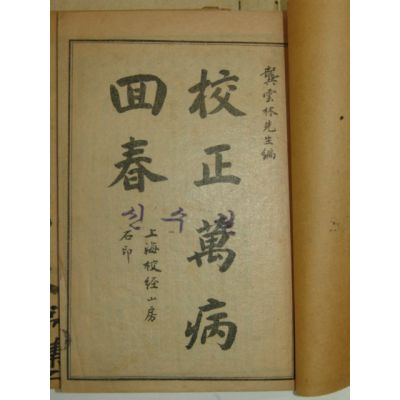 龔雲林先生編
校正萬病
回春
上海校經山房
石印